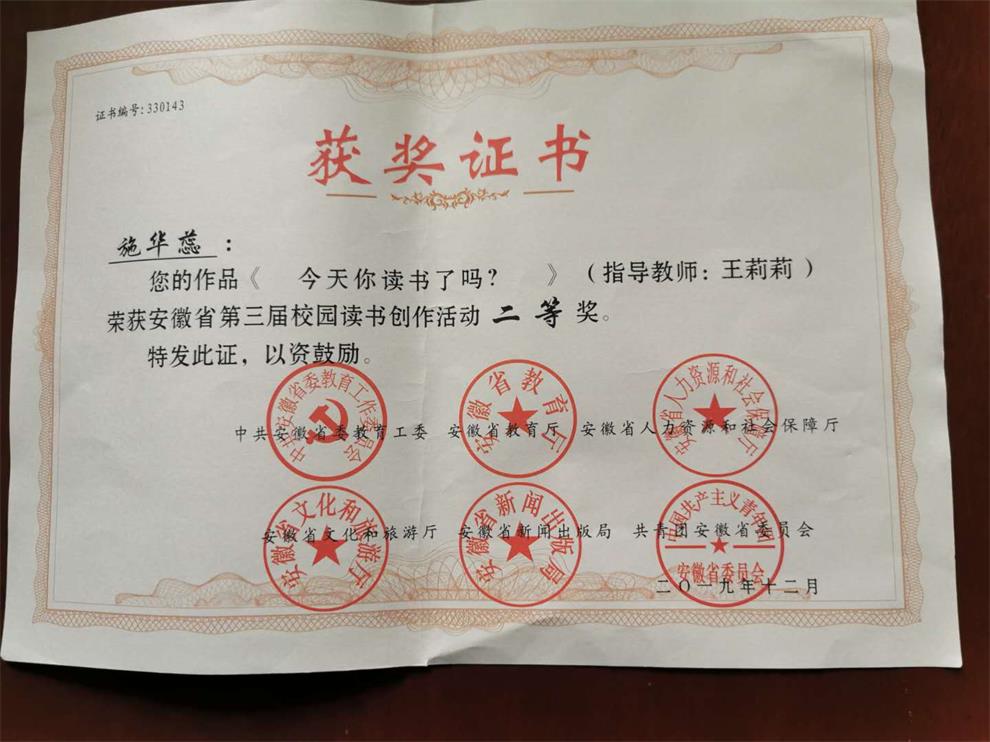 证书编号:330143
获奖证书
施华蕊：
您的作品《 今天你读书了吗？ 》（指导教师：王莉莉）
荣获安徽省第三届校园读书创作活动 二等奖。
特发此证，以资鼓励。
中共安徽省委教育工作委员会
安徽省教育厅
安徽省人力资源和社会保障厅
中共安徽省委教育工委 安徽省教育厅 安徽省人力资源和社会保障厅
安徽省文化和旅游厅
安徽省新闻出版局
中国共产主义青年团
安徽省委员会
安徽省文化和旅游厅 安徽省新闻出版局 共青团安徽省委员会
二〇一九年十二月